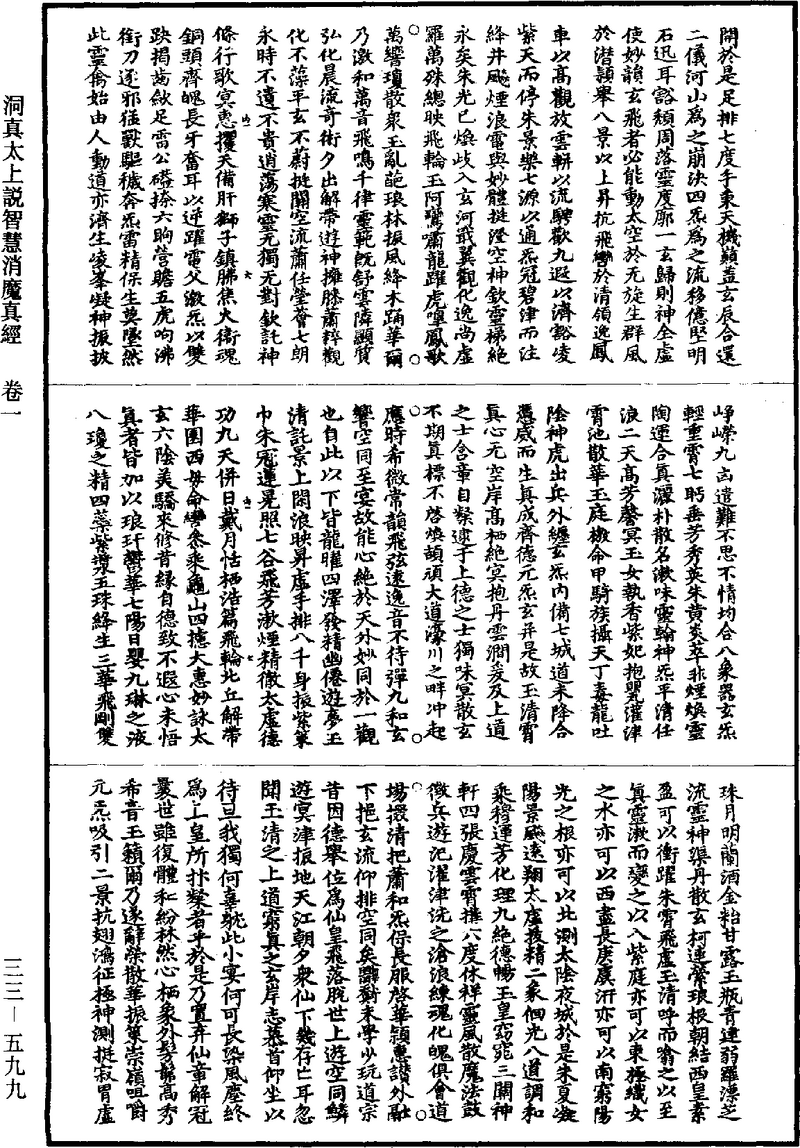 洞真太上說智慧消魔真經　卷一
三三—五九九
開於是足排七度手乘天機顛蓋玄辰合還
二儀河山為之崩決四炁為之流移億堅明
石迅耳豁頹周落靈度廓一玄歸則神全虛
使妙韻玄飛者必能動太空於无旋生群風
於潜頴舉八景以上昇抗飛轡於清領逸鳳
車以高觀放雲軿以流騁歡九遐以濟豁凌
紫天而停朱景樂七源以通炁冠碧津而注
絳井飈煙浪雷與妙體挺澄空神欽靈梯絕
永矣朱光已煥歧入玄河戢冀觀化逸尚虛
羅萬殊總映飛輪玉阿鸞嘯龍躍虎嘷鳳歌
萬響瓊散衆玉亂葩琅林振風絳木踊華爾
乃激和萬音飛鳴千律靈範旣舒雲陵顯質
弘化晨流奇術夕出解帶遊神擁膝蕭粹觀
化不藻平玄不蔚挺關空流蕭任瑩薈七朗
永時不遺不貴逍蕩寒靈无獨无對欽託神
條行歌冥惠攫天備肝獅子鎮胇焦火衛魂
銅頭齊魄長牙奮耳以逆躍雷父激炁以雙
趹揭齒歘足雷公磕捺六眴營瞻五虎呴沸
銜刀逐邪猛獸驅穢奔炁雷精保生莫墜然
此靈禽始由人動道亦濟生凌峯凝神振披
崢嶸九凶遣難不思不情均合八象器玄炁
輕重霄七眄垂芳秀英朱黄炎萃非煙煥靈
陶運合真澶朴散名漱味靈翰神炁平清任
浪二天高芳馨冥玉女執香紫妃抱甖灌津
霄池散華玉庭檄命甲騎族攝天丁毒龍吐
陰神虎出兵外纏玄炁內備七城道來降合
憑感而生真成齊德元炁玄幷是故玉清霄
真心无空岸高栖絕冥抱丹雲澗爰及上道
之士含章自粲逮于上德之士獨味冥散玄
不期真標不啓煥頡頏大道濠川之畔冲起
應時希微常韻飛弦逺逸音不待彈九和玄
響空同至宴故能心絕於天外妙同於一觀
也自此以下皆龍曜四澤發精幽僊遊夢玉
清託景上閑浪映昇虛手排八千身振紫策
巾朱冠蓮晃照七谷飛芳漱煙精徹太虛德
功九天併日戴月恬栖浩篇飛輪北丘解帶
華圃西母命鸞叅乘龜山四摠大惠妙詠太
玄六陰美驕來修昔緣自德致不遐心未悟
真者皆加以琅玕鬱華七陽日嬰九琳之液
八瓊之精四藥紫漿五珠絳生三華飛剛雙
珠月明蘭酒金粭甘露玉瓶青逹弱羅漂芝
流靈神渠丹散玄柯連縈琅根朝結西皇素
盈可以衝躍朱霄飛虛玉清呼而喻之以至
真靈漱而變之以八紫庭亦可以東極織女
之水亦可以西盡長庚虞汧亦可以南窮陽
光之根亦可以北測太陰夜城於是朱夏凝
陽景飈遠翔太虛拔精二象迴光八道調和
乘穆運芳化理九絕德暢玉皇窈窕三關神
軒四張慶雲霄攜六度休祥靈風散魔法鼓
徵兵遊汜濯津洗之滄浪練魂化魄俱會道
場掇清把蕭和炁保長服啓華頴惠讃外融
下挹玄流仰排空同矣鸐對未學少玩道宗
昔因德舉位為仙皇飛落脫世上遊空同鱗
遊冥津振地天江朝夕衆仙下幾存亡耳忽
聞玉清之上道寀真之玄岸志慕首仰坐以
待旦我獨何喜躭此小宴何可長染風塵終
為上皇所抃粲者乎於是乃置弃仙章解冠
曩世雖復體和紛林然心栖衆外髣髴高秀
希音玉籟爾乃遂辭榮散華振策崇嶺咀嚼
元炁吸引二景抗翅鴻征極神測挺寂胃虛